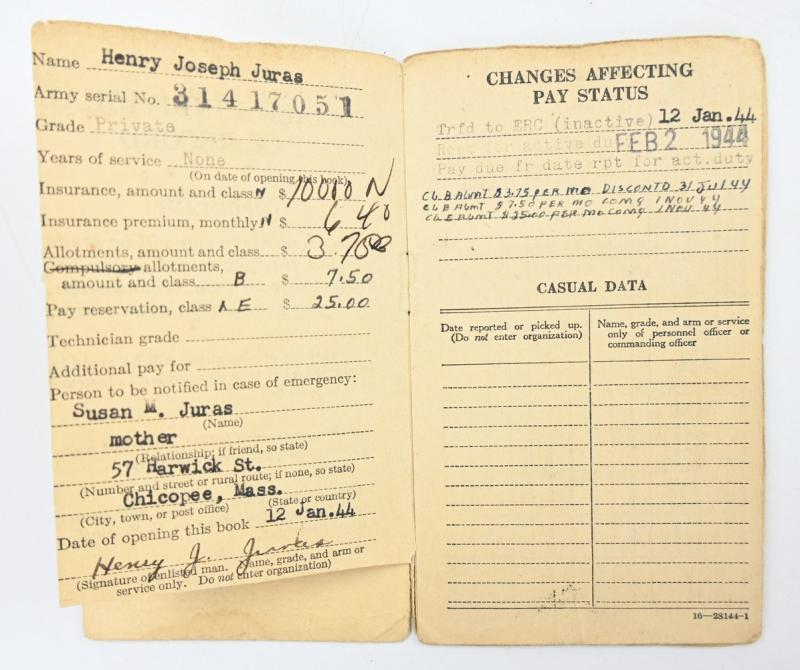 Name Henry Joseph Juras
Army serial No. 31417051
Grade Private
Years of service None
(On date of opening this book)
Insurance, amount and class N $ 10000 N
Insurance premium, monthly N $ 6 40
Allotments, amount and class $ 3.75
Compulsory allotments,
amount and class B $ 7.50
Pay reservation, class E $ 25.00
Technician grade
Additional pay for
Person to be notified in case of emergency:
Susan M. Juras
(Name)
mother
(Relationship; if friend, so state)
57 Harwick St.
(Number and street or rural route; if none, so state)
Chicopee, Mass.
(City, town, or post office) (State or country)
Date of opening this book 12 Jan.44
Henry J. Juras
(Signature of enlisted man. Name, grade, and arm or
service only. Do not enter organization)
CHANGES AFFECTING
PAY STATUS
Trfd to ERC (inactive) 12 Jan.44
active du FEB 2 1944
Pay due fr date rpt for act.duty
CL B ALMT $3.75 PER MO DISCONTD 31 JUL 44
CL B ALMT $7.50 PER MO COMG 1 NOV 44
CL E ALMT $25.00 PER MO COMG 1 NOV 44
CASUAL DATA
Date reported or picked up.
(Do not enter organization)
Name, grade, and arm or service
only of personnel officer or
commanding officer
16—28144-1